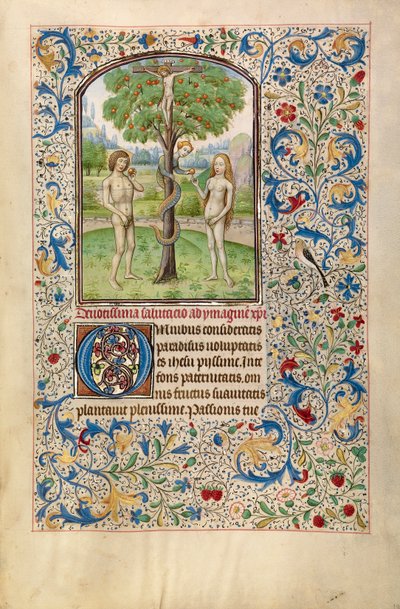 Deuotissima salutatio ad ymaginē xpi
Omnibus consideratis
paradisus uoluptatis
es ihesu pijssime. Inte
fons paternitatis, om
nis fructus suauitatis
plantauit plenissime. Passionis tue